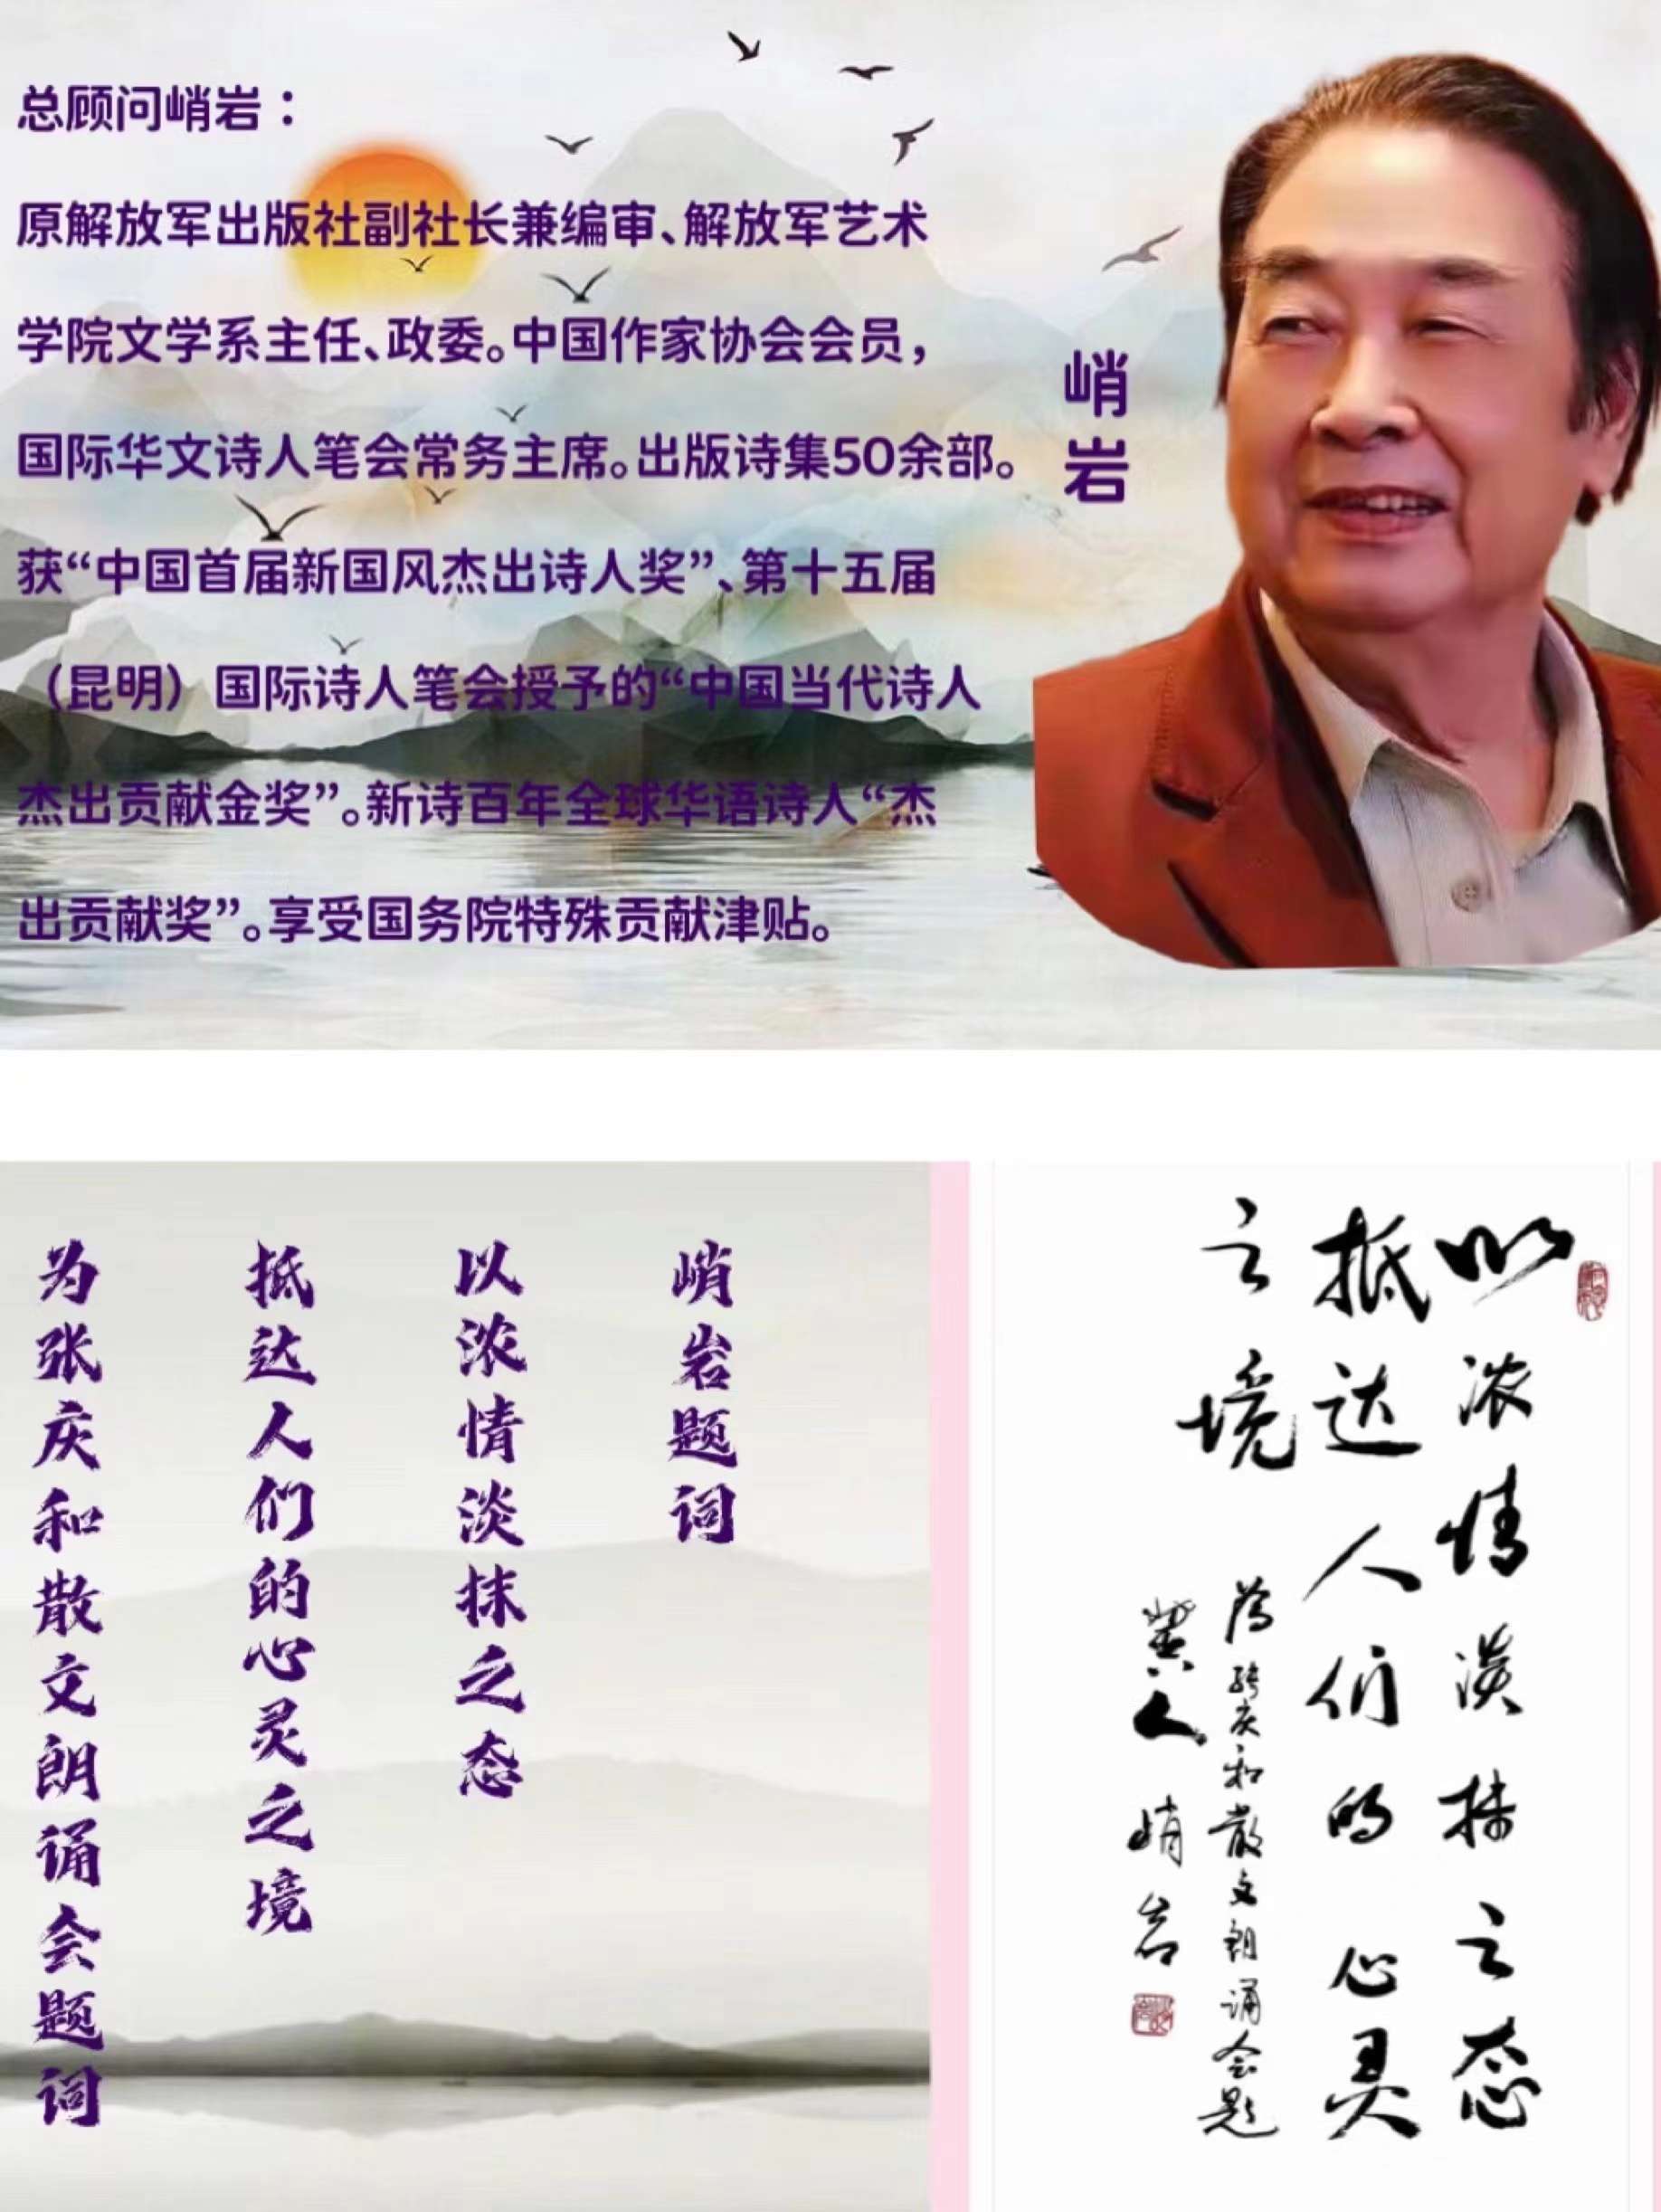 总顾问峭岩：
原解放军出版社副社长兼编审、解放军艺术
学院文学系主任、政委。中国作家协会会员，
国际华文诗人笔会常务主席。出版诗集50余部。
获“中国首届新国风杰出诗人奖”、第十五届
（昆明）国际诗人笔会授予的“中国当代诗人
杰出贡献金奖”。新诗百年全球华语诗人“杰
出贡献奖”。享受国务院特殊贡献津贴。
峭岩
峭岩题词
以浓情淡抹之态
抵达人们的心灵之境
为张庆和散文朗诵会题词
以浓情淡抹之态
抵达人们的心灵
之境
为张庆和散文朗诵会题
人 峭岩